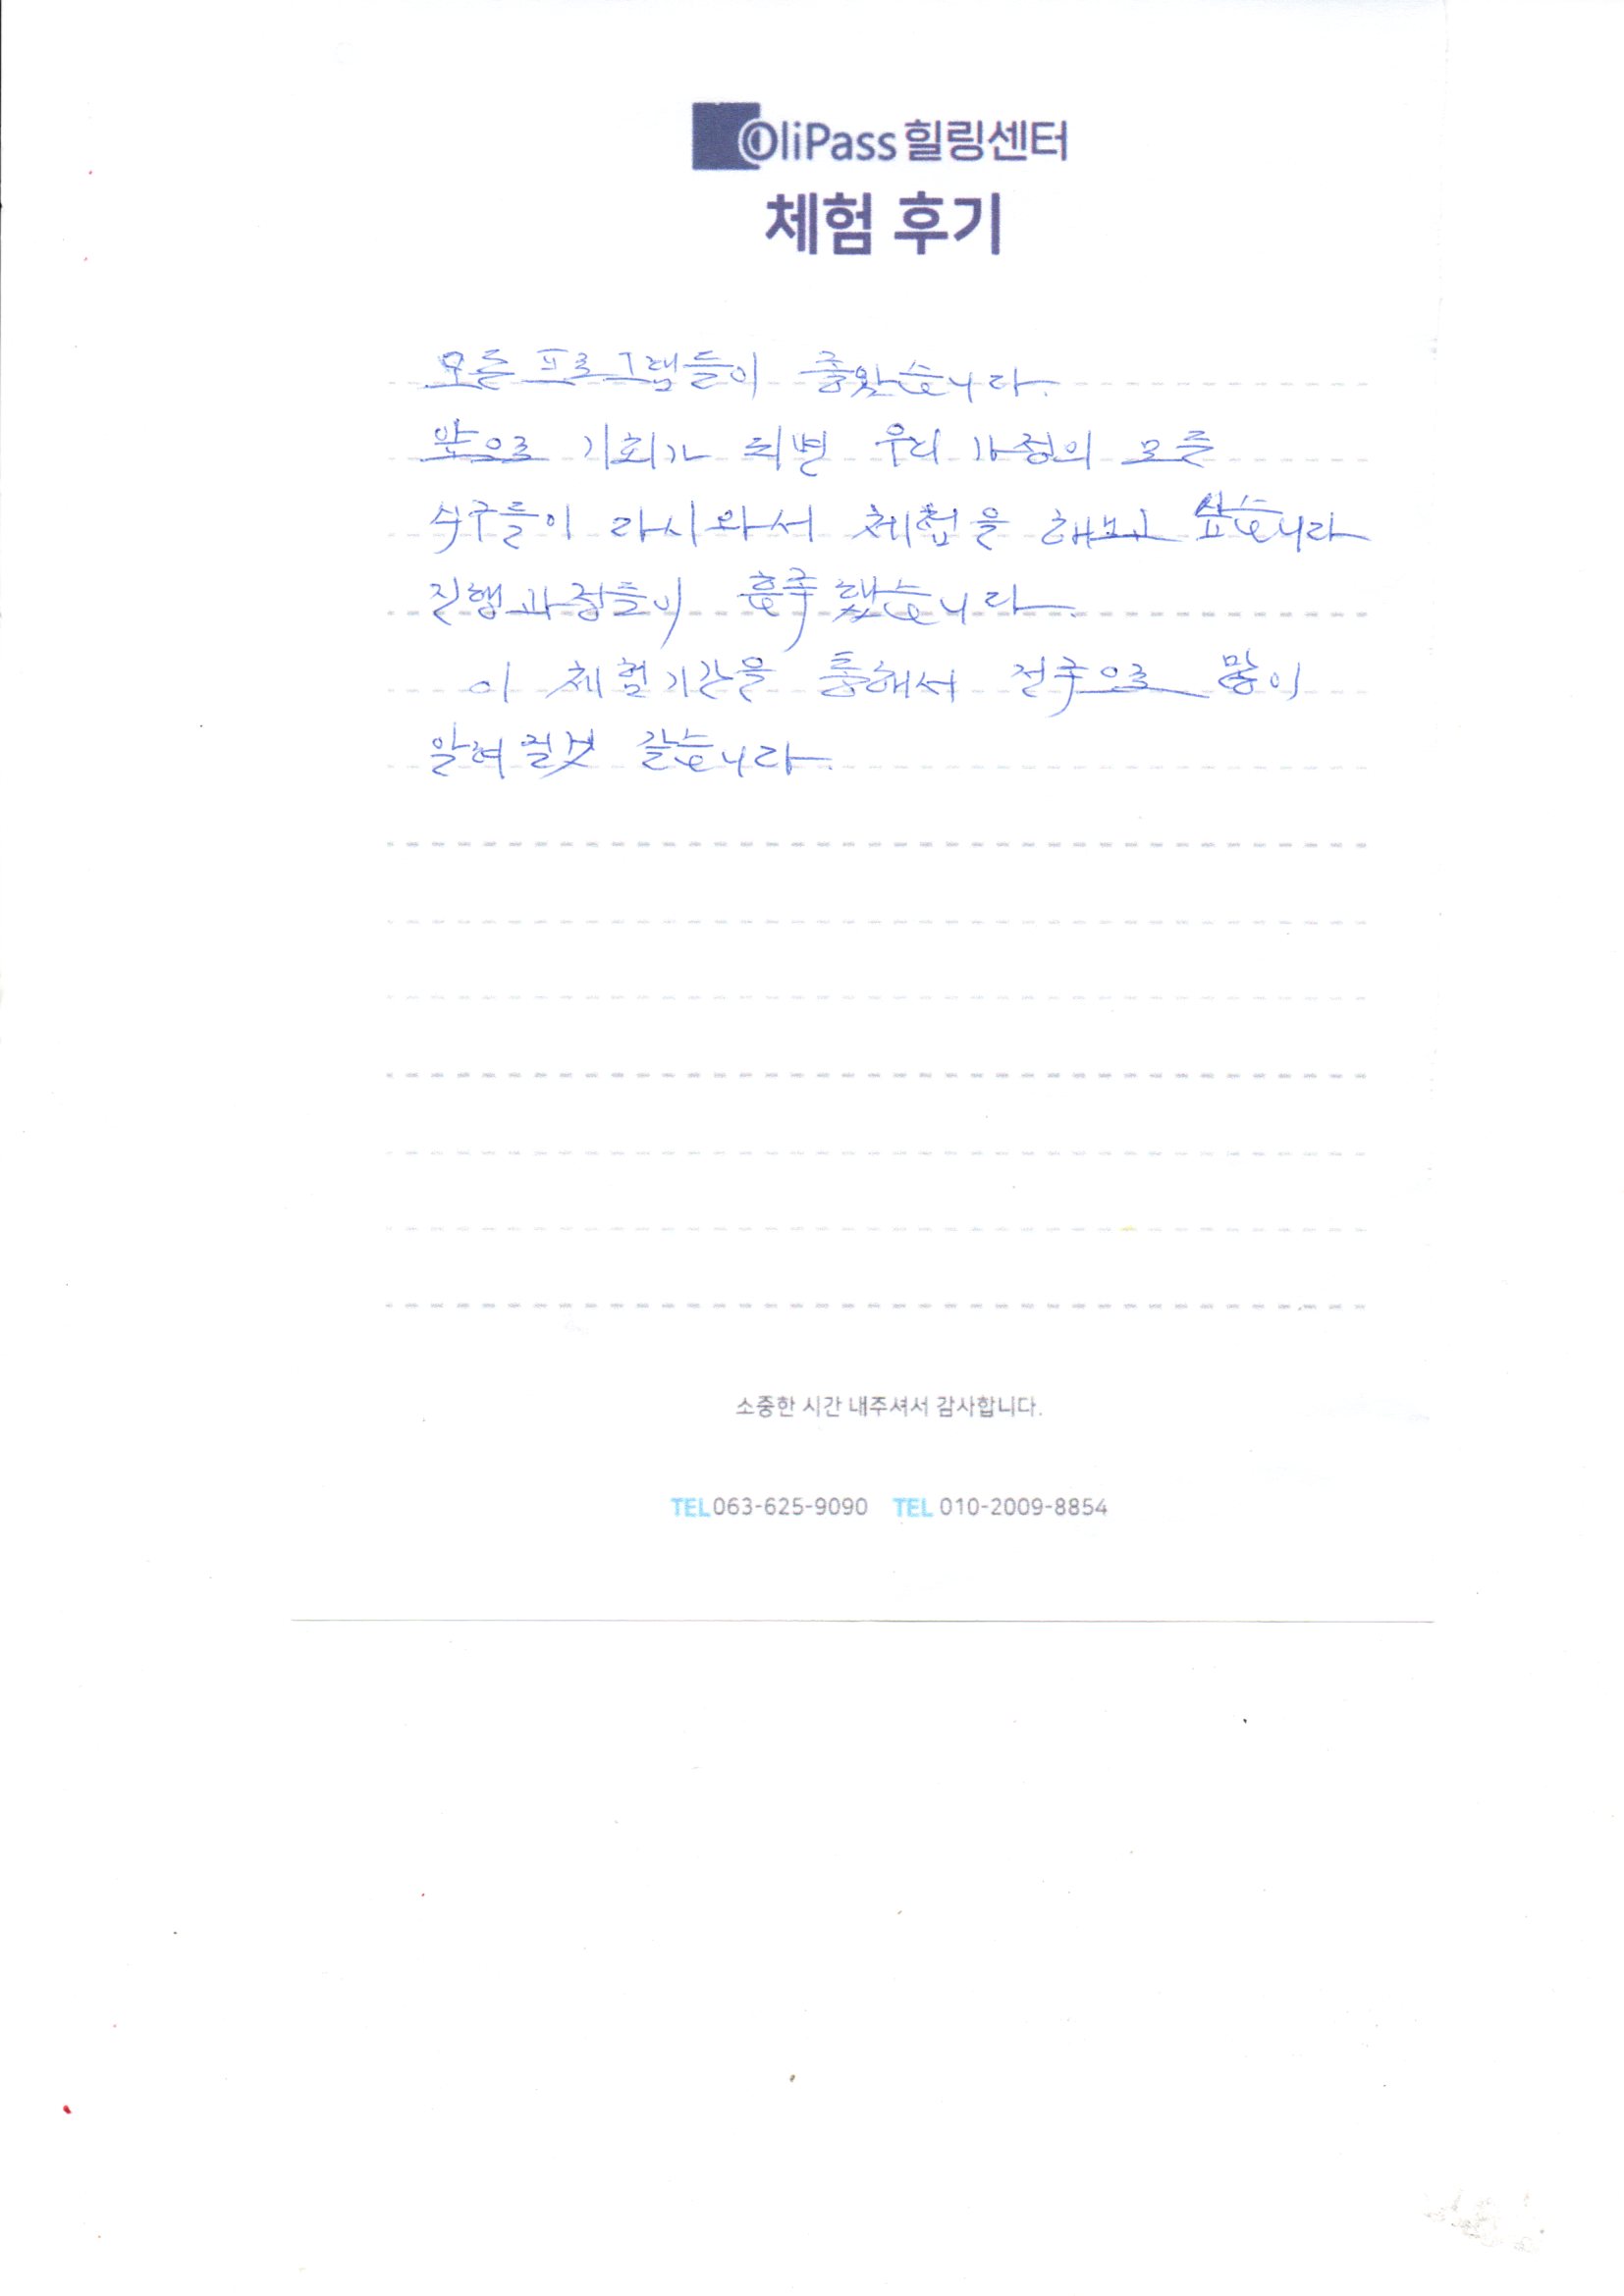 OliPass 힐링센터
체험 후기
모든 프로그램들이 좋았습니다.
앞으로 기회가 되면 우리 가정의 모든
식구들이 다시와서 체험을 해보고 싶습니다
진행과정들이 흡족했습니다.
이 체험기간을 통해서 전국으로 많이
알려질것 같습니다.
소중한 시간 내주셔서 감사합니다.
TEL 063-625-9090 TEL 010-2009-8854